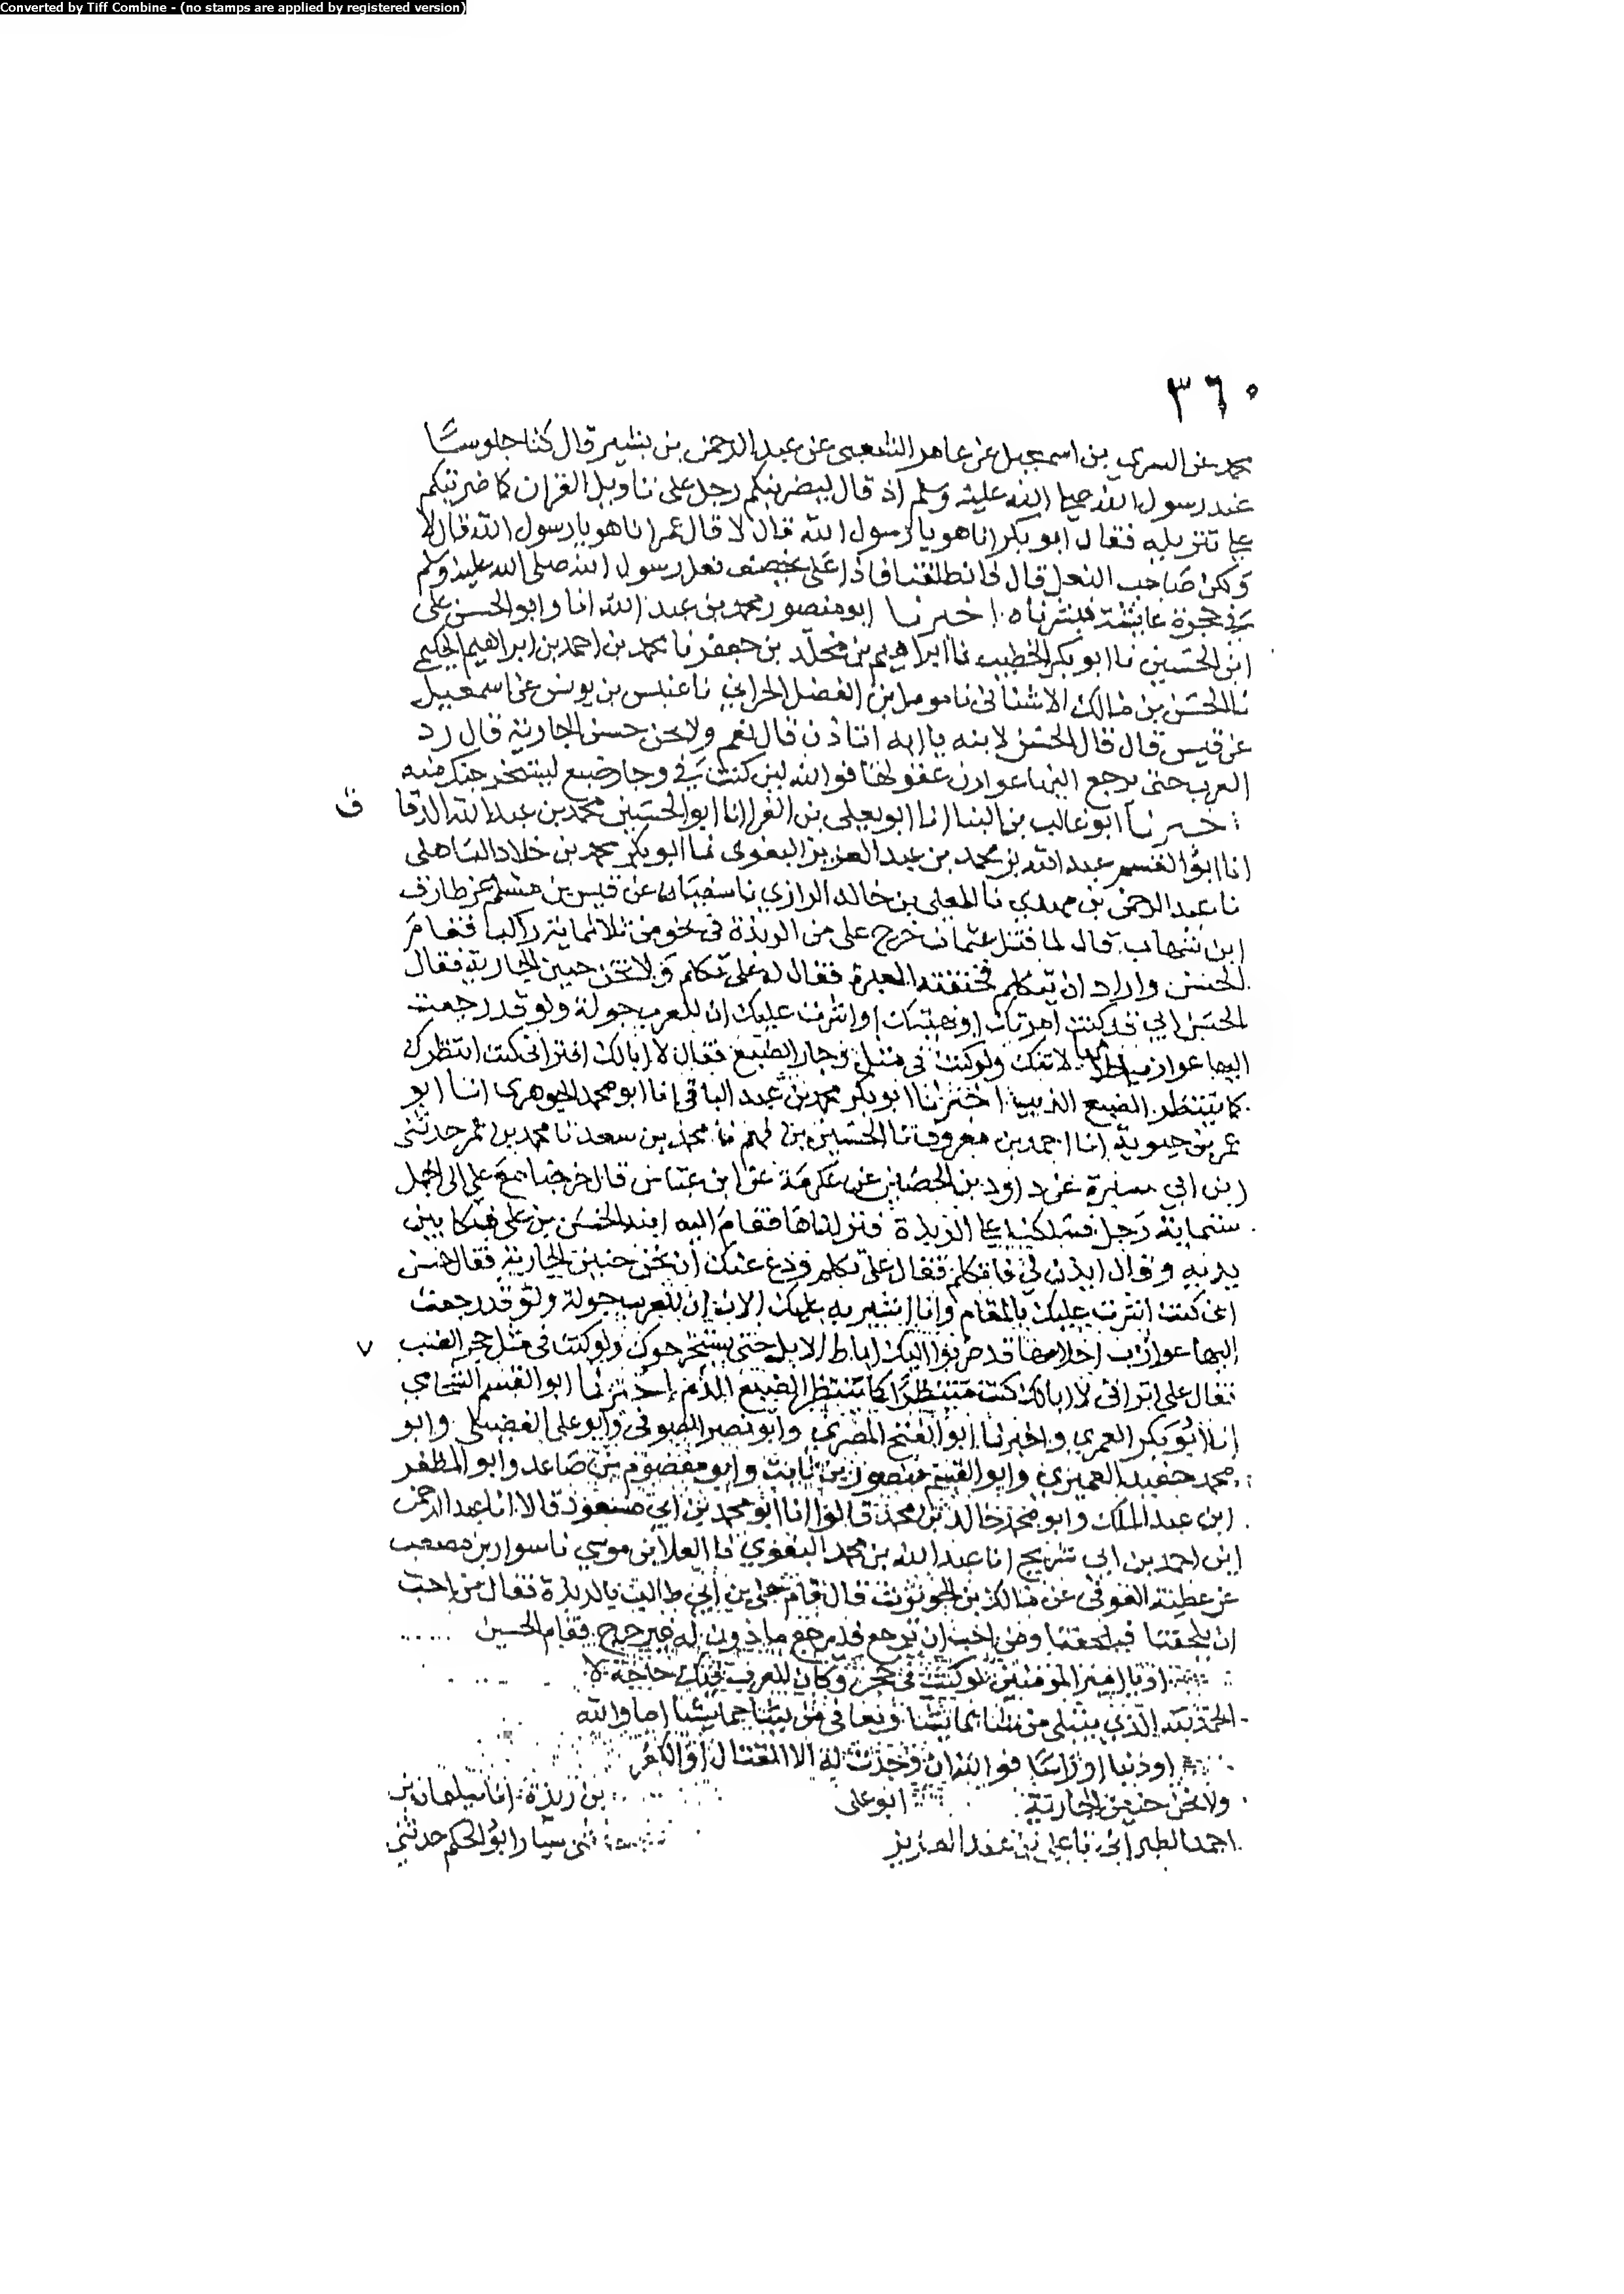 Converted by Tiff Combine - (no stamps are applied by registered version)
٣٦٠
محمد عن السري بن اسمعيل عن عامر الشعبى عن عبد الرحمن بن بشير قال كنا جلوسًا
عند رسول الله صلى الله عليه وسلم اذ قال ليضربنكم رجل على تاويل القران كما ضربتكم
على تنزيله فقال ابو بكر انا هو يا رسول الله قال لا قال عمر انا هو يا رسول الله قال لا
ولكن صاحب النعل قال فانطلقنا فاذا على يخصف نعل رسول الله صلى الله عليه وسلم
في حجرة عائشة فبشرناه اخبرنا ابو منصور محمد بن عبد الله انا وابو الحسن على
ابن الحسين نا ابو بكر الخطيب نا ابراهيم بن مخلد بن جعفر نا محمد بن احمد بن ابراهيم الحكيمي
نا الحسن بن مالك الاشنانى نا مومل بن الفضل الحراني نا عيس بن يونس عن اسمعيل
عن قيس قال قال الحسن لابنه يا ابه اتاذن قال نعم ولا تحن حنين الجارية قال رد
العرب حتى ترجع اليها عوازن عقولها فوالله لين كنت في وجار ضبع ليستخرجنك منه
اخبرنا ابو غالب بن البنا انا ابو يعلى بن الفرا انا ابو الحسين محمد بن عبد الله الدقا ق
انا ابو القسم عبد الله بن محمد بن عبد العزيز البغوى نا ابو بكر محمد بن خلاد الباهلى
نا عبد الرحمن بن مهدي نا المعلى بن خالد الرازي نا سفيان عن قيس بن مسلم عن طارق
ابن شهاب قال لما قتل عثمان خرج على من الربذة في نحو من ثلاثماية راكب فقام
الحسن واراد ان يتكلم فخنقته العبرة فقال له على تكلم ولا تحن حنين الجارية فقال
الحسن اني قد كنت امرتك او نهيتك او اشرت عليك ان للعرب جولة ولو قد رجعت
اليها عوازب احلامها لاتتك ولو كنت في مثل وجار الضبع فقال لا ابالك افتراني كنت انتظرك
كما ينتظر الضبع الذبيبة اخبرنا ابو بكر محمد بن عبد الباقي انا ابو محمد الجوهرى انا ابو
عمر بن حيوية انا احمد بن معروف نا الحسين بن فهم نا محمد بن سعد نا محمد بن عمر حدثنى
ابن ابي سبرة عن داود بن الحصين عن عكرمة عن ابن عباس قال خرجنا مع علي الى الجمل
ستماية رجل فسلكنا على الربذة فنزلناها فقام اليه ابنه الحسن بن على فبكا بين
يديه وقال ايذن لي فاتكلم فقال على تكلم ودع عنك ان تحن حنين الجارية فقال حسن
اني كنت اشرت عليك بالمقام وانا اشير به عليك الان ان للعرب جولة ولو قد رجعت
اليها عوازب احلامها قد ضربوا اليك اباط الابل حتى يستخرجوك ولو كنت فى مثل حجر الضب ٧
فقال على اترانى لا ابالك كنت منتظرًا كما ينتظر الضبع اللدم اخبرنا ابو القسم الشحامي
انا ابو بكر العمري واخبرنا ابو الفتح المصري وابو نصر الصوفى وابو على الفضيلى وابو
محمد حفيد العميري وابو القسم منصور بن ثابت وابو معصوم بن صاعد وابو المظفر
ابن عبد الملك وابو محمد خالد بن محمد قالوا انا ابو محمد بن ابي مسعود قالا انا عبد الرحمن
ابن احمد بن ابي شريح انا عبد الله بن محمد البغوي نا العلا بن موسي نا سوار بن مصعب
عن عطية العوفى عن مالك بن الجويرث قال قام على بن ابي طالب بالربذة فقال من احب
ان يلحقنا فيلحقنا ومن احب ان يرجع فليرجع ماذون له غير حرج فقام الحسين
يا امير المومنين لو كنت في حجر وكان للعرب فيك حاجة لا
الحمد لله الذي يبتلى من شا بما شا ويعافى من شا بما شا اما والله
فوالله ان وجدت له الا القتال او الكفر
ولا تحن حنين الجارية ابو على بن ريذة انا سليمان بن
احمد الطبراني نا على بن عبد العزيز ثنى سيار ابو الحكم حدثنى